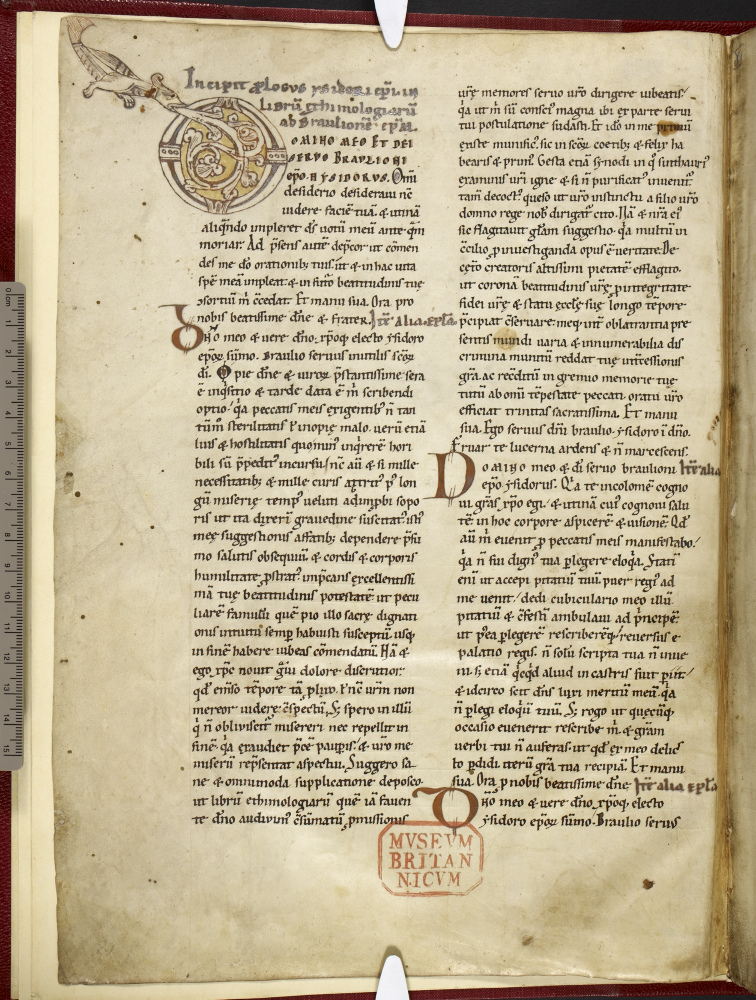 Incipit ꝓlogus ysidori epi in
librū ethimologiarū
ab Braulionē epm̄.
DOMINO MEO ET DEI
SERVO BRAVLIONI
epo HYSIDORVS. Om̄i
desiderio desideraui nc̄
uidere faciē tuā. & utinā
aliqn̄do impleret ds̄ uotū meū anteqͣm
moriar. Ad p̄sens autē dep̄cor ut cōmen
des me dō orationibꝫ tuis. ut & in hac uita
spē meā impleat. & in futō beatitudinis tuę
ꝯsortiū m̄ c̄cedat. Et manu sua. Ora pro
nobis beatissime dn̄e & frater. Itē alia epl̄a.
Dn̄o meo & uere dn̄o. xp̄oqꝫ electo ysidoro
epoꝝ sūmo. Braulio seruus inutilis sc̄oꝝ
dī. O pie dn̄e & uiroꝝ p̄stantissime sera
ē inq̄sitio & tarde data ē m̄ scribendi
optio. qͣa peccatis meis exigentibꝫ n̄ tan
tūm sterilitatis ł inopię malo. uerū etiā
luis & hostilitatis quominꝰ inq̄rerē hori
bili sū p̄peditꝰ incursu. nc̄ aū & si mille
necessitatibꝫ & mille curis attritꝰ p̱ lon
gū miserię tempꝰ ueluti
ris ut ita dixeri grauedine suscitatꝰ. istꝰ
meę suggestionis affatibꝫ dependere p̄su
mo salutis obsequiū. & cordis & corporis
humilitate ꝓstratꝰ. excellentissi
mā tuę beatitudinis potestatē. ut pecu
liarē famulū quē pio illo sacrę dignati
onis intuitu semꝑ habuisti susceptū. usqꝫ
in finē habere iubeas cōmendatū. Nā &
ego xp̄c nouit gͣui dolore discrutior.
qd̄ emso tēpore tā ꝓlixo. ł nc̄ urm̄ non
mereor uidere c̄spectū. Sꝫ spero in illū
q̄ n̄ obliuiscitꝰ misereri nec repellit in
finē. qͣa exaudiet p̄ce paup̱is. & uro me
miserū rep̄sentat aspectui. Suggero sa
ne & omnimoda supplicatione deposco.
ut librū ethimologiarū quē iā fauen
te dn̄o audiuimꝰ c̄sūmatū. ꝓmissionis
urę memores seruo uro dirigere iubeatis.
qͣa ut m̄ sū consciꝰ magna ibi ex parte serui
tui postulatione sudasti. Et idō in me primū
existe munificꝰ. sic in sc̄oꝝ coetibꝫ & felix ha
bearis & primꝰ. Gesta etiā synodi in q̄
examinis uri igne & si n̄ purificatꝰ inuenitꝰ.
tam̄ decoctꝰ queso ut uro instinctu a filio uro
domno rege nob̄ dirigat̄ cito. Nā & nr̄a eiꝰ
sic flagitauit gl̄am suggestio. qͣa multū in
c̄cilio ꝓ inuestiganda opus ē ueritate. De
cet̄o creatoris altissimi pietatē efflagito.
ut corona beatitudinis urę. ꝓ integritate
fidei urę & statu eccłę suę longo tēpore
p̄cipiat c̄seruare. meqꝫ int̄ oblatrantia pre
sentis mundi uaria & innumerabilia dis
crimina munitū reddat tuę int̄cessionis
gr̄a. ac recōditū in gremio memorię tuę
tutū ab om̄i tēpestate peccati. oratu uro
efficiat trinitas sacratissima. Et manu
sua. Ego seruus dn̄i braulio. ysidoro ī dn̄o.
fruar te lucerna ardens & n̄ marcescens.
DOMINO meo & dī seruo braulioni Itē alia
epo ysidorus. Qͣa te incolomē cogno
ui. grās xp̄o egi. & utinā cuiꝰ cognoui salu
tē. in hoc corpore aspicerē & uisionē. Qd̄
aū m̄ euenit ꝓ peccatis meis manifestabo.
qͣa n̄ fui dignꝰ tua ꝑlegere eloq̄a. Statī
eni ut accepi pitatiū tuū. puer regiꝰ ad
me uenit. dedi cubiculario meo illū
pitatiū. & c̄festi ambulaui ad p̄ncipē.
ut p̱ea ꝑlegerē rescriberēqꝫ. reuersus e
palatio regis. n̄ solū scripta tua n̄ inue
ni. sꝫ etiā qͥcqͥd aliud in cartis fuit p̱iit.
& idcirco scit dn̄s luxi meritū meū. qͣa
n̄ ꝑlegi eloquiū tuū. Sꝫ rogo ut quecūqꝫ
occasio euenerit rescribe m̄. & gr̄am
uerbi tui n̄ auferas. ut qd̄ ex meo delic
to p̱didi. iterū gr̄a tua recipiā. Et manu
sua. Ora ꝓ nobis beatissime dn̄e. Itē alia epl̄a
Dn̄o meo & uere dn̄o. xp̄oqꝫ electo
ysidoro epoꝝ sūmo. Braulio seruꝰ
MVSEVM
BRITAN
NICVM